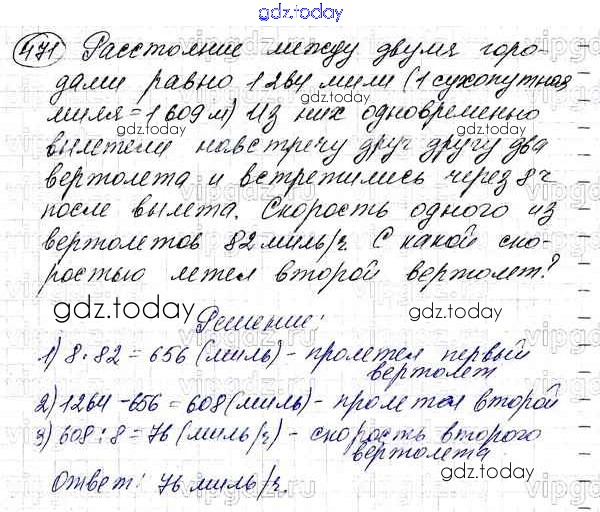 gdz.today
471 Расстояние между двумя горо-
дами равно 1264 мили (1 сухопутная
миля = 1609 м) Из них одновременно
вылетели навстречу друг другу два
вертолета и встретились через 8 ч
после вылета. Скорость одного из
вертолетов 82 миль/ч. С какой ско-
ростью летел второй вертолет?
gdz.today
Решение:
1) 8 · 82 = 656 (миль) - пролетел первый
вертолет
2) 1264 - 656 = 608 (миль) - пролетел второй
3) 608 : 8 = 76 (миль/ч) - скорость второго
вертолета.
Ответ: 76 миль/ч.
gdz.today